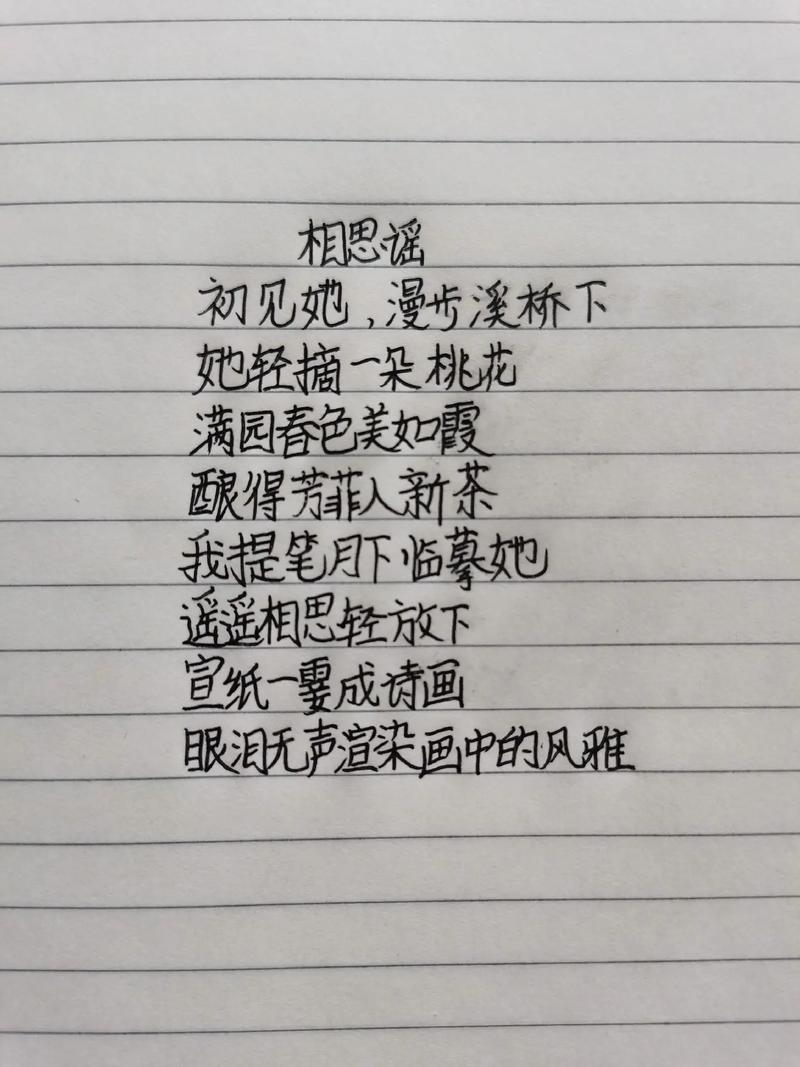 相思谣
初见她，漫步溪桥下
她轻摘一朵桃花
满园春色美如霞
酿得芳菲入新茶
我提笔月下临摹她
遥遥相思轻放下
宣纸一霎成诗画
眼泪无声渲染画中的风雅